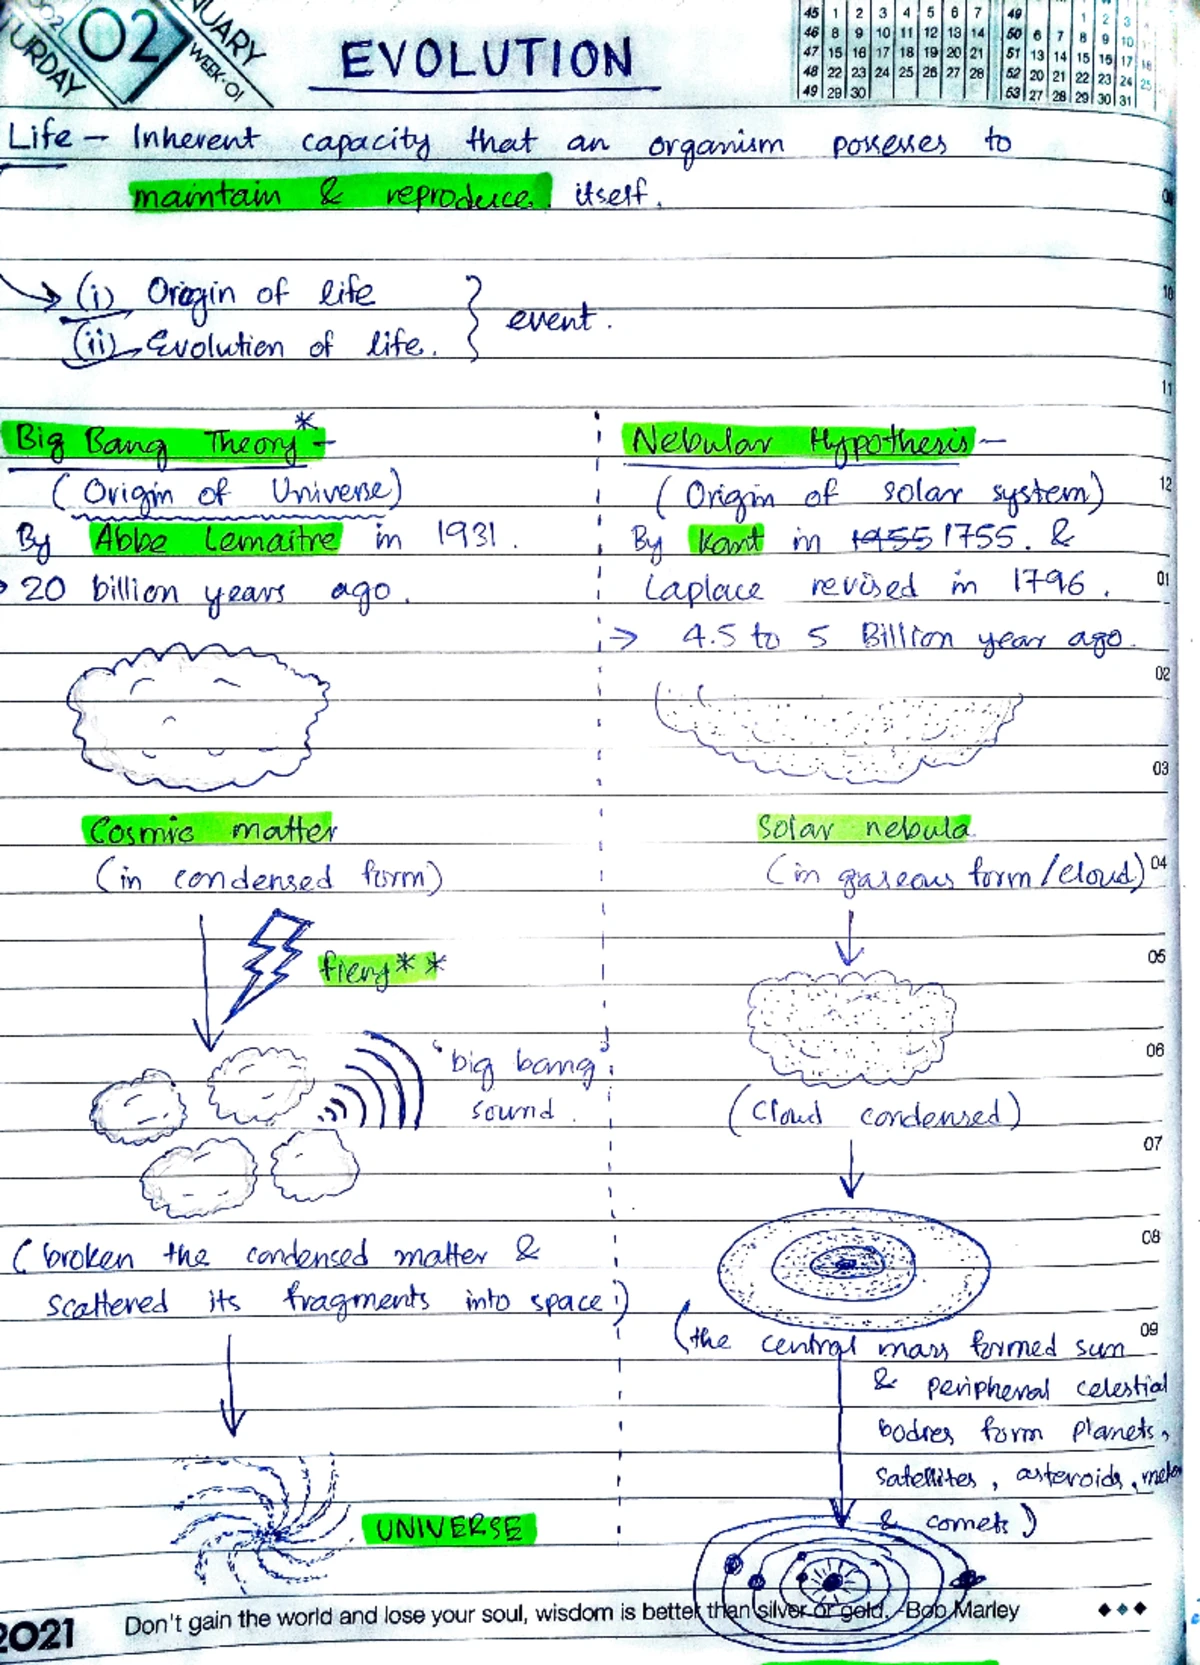 02
WEEK-01
EVOLUTION
45 1 2 3 4 5 6 7
46 8 9 10 11 12 13 14
47 15 16 17 18 19 20 21
48 22 23 24 25 26 27 28
49 29 30
49 1 2 3
50 6 7 8 9 10
51 13 14 15 16 17 18
52 20 21 22 23 24 25
53 27 28 29 30 31
Life – Inherent capacity that an organism possesses to
maintain & reproduce itself.
(i) Origin of life
(ii) Evolution of life. } event.
10
11
Big Bang Theory* –
(Origin of Universe)
By Abbe Lemaitre in 1931.
20 billion years ago.
Cosmic matter
(in condensed form)
fiery**
'big bang'
sound.
(broken the condensed matter &
scattered its fragments into space)
UNIVERSE
Nebular Hypothesis –
(Origin of solar system)
By Kant in 1955 1755. &
Laplace revised in 1796.
→ 4.5 to 5 Billion year ago.
Solar nebula
(in gaseous form/cloud)
(Cloud condensed)
(the central mass formed sun
& peripheral celestial
bodies form planets,
satellites, asteroids,
& comets)
12
01
02
03
04
05
06
07
08
09
2021
Don't gain the world and lose your soul, wisdom is better than silver or gold. -Bob Marley